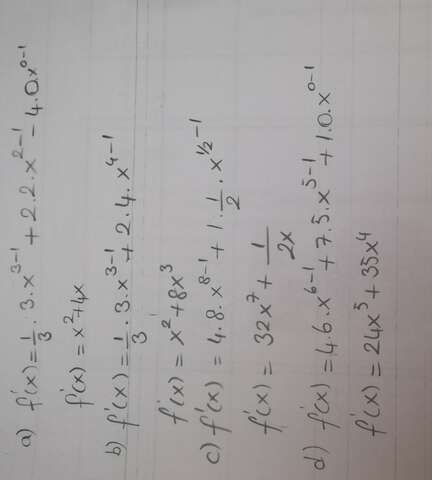 a) f'(x) = 1/3 · 3 · x^(3-1) + 2 · 2 · x^(2-1) - 4 · 0 · x^(0-1)
f'(x) = x² + 4x
b) f'(x) = 1/3 · 3 · x^(3-1) + 2 · 4 · x^(4-1)
f'(x) = x² + 8x³
c) f'(x) = 4 · 8 · x^(8-1) + 1 · 1/2 · x^(1/2-1)
f'(x) = 32x⁷ + 1/2x
d) f'(x) = 4 · 6 · x^(6-1) + 7 · 5 · x^(5-1) + 1 · 0 · x^(0-1)
f'(x) = 24x⁵ + 35x⁴